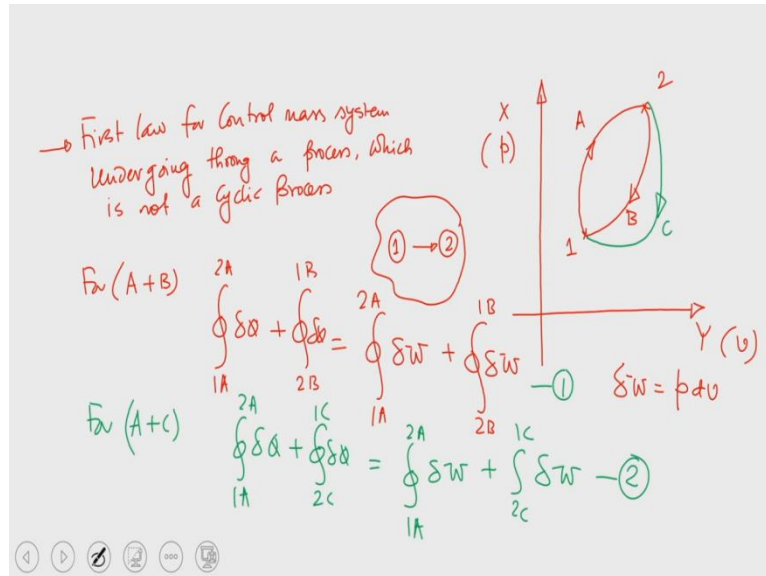 → First law for Control mass system
undergoing throng a process, which
is not a cyclic process
X
(p)
2
A
B
C
1
Y (v)
① → ②
For (A+B) ∮_{1A}^{2A} δQ + ∮_{2B}^{1B} δQ = ∮_{1A}^{2A} δW + ∮_{2B}^{1B} δW —①
δW = pdv
For (A+C) ∮_{1A}^{2A} δQ + ∮_{2C}^{1C} δQ = ∮_{1A}^{2A} δW + ∫_{2C}^{1C} δW —②